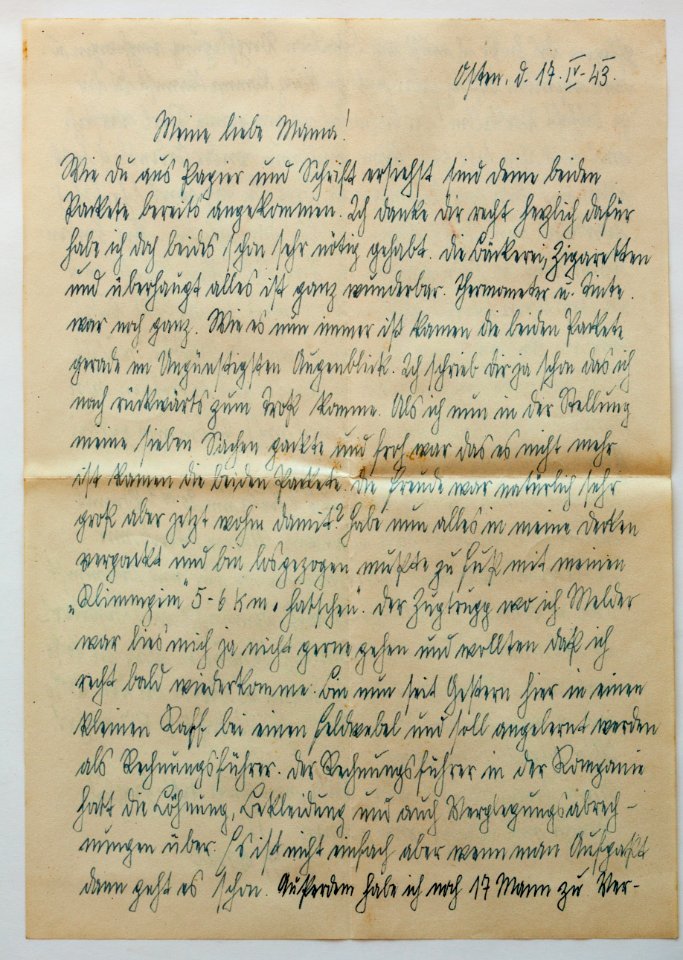 Osten, d. 17.IV.43.
Meine liebe Mama!
Wie du aus Papier und Schrift ersiehst sind deine beiden
Packete bereits angekommen. Ich danke dir recht herzlich dafür
habe ich doch beides schon sehr nötig gehabt. die Bäckerei, Zigaretten
und überhaupt alles ist ganz wunderbar. Thermometer u. Tinte.
war noch ganz. Wie es nun immer ist kamen die beiden Packete
gerade im Ungünstigsten Augenblick. Ich schrieb dir ja schon das ich
nach rückwärts zum Troß komme. Als ich nun in der Stellung
meine sieben Sachen packte und froh war das es nicht mehr
ist kamen die beiden Packete. die Freude war natürlich sehr
groß aber jetzt wohin damit? habe nun alles in meine decken
verpackt und bin losgezogen mußte zu Fuß mit meinen
„Klimmpim" 5-6 km „hatschen". der Zugtrupp wo ich Melder
war lies mich ja nicht gerne gehen und wollten daß ich
recht bald wiederkomme. Bin nun seit Gestern hier in einen
kleinen Kaff bei einen Feldwebel und soll angelernt werden
als Rechnungsführer. der Rechnungsführer in der Kompanie
hatt die Löhnung, Bekleidung und auch Verpflegungsabrech-
nungen über. Es ist nicht einfach aber wenn man Aufpaßt
dann geht es schon. Außerdem habe ich noch 17 Mann zu Ver-